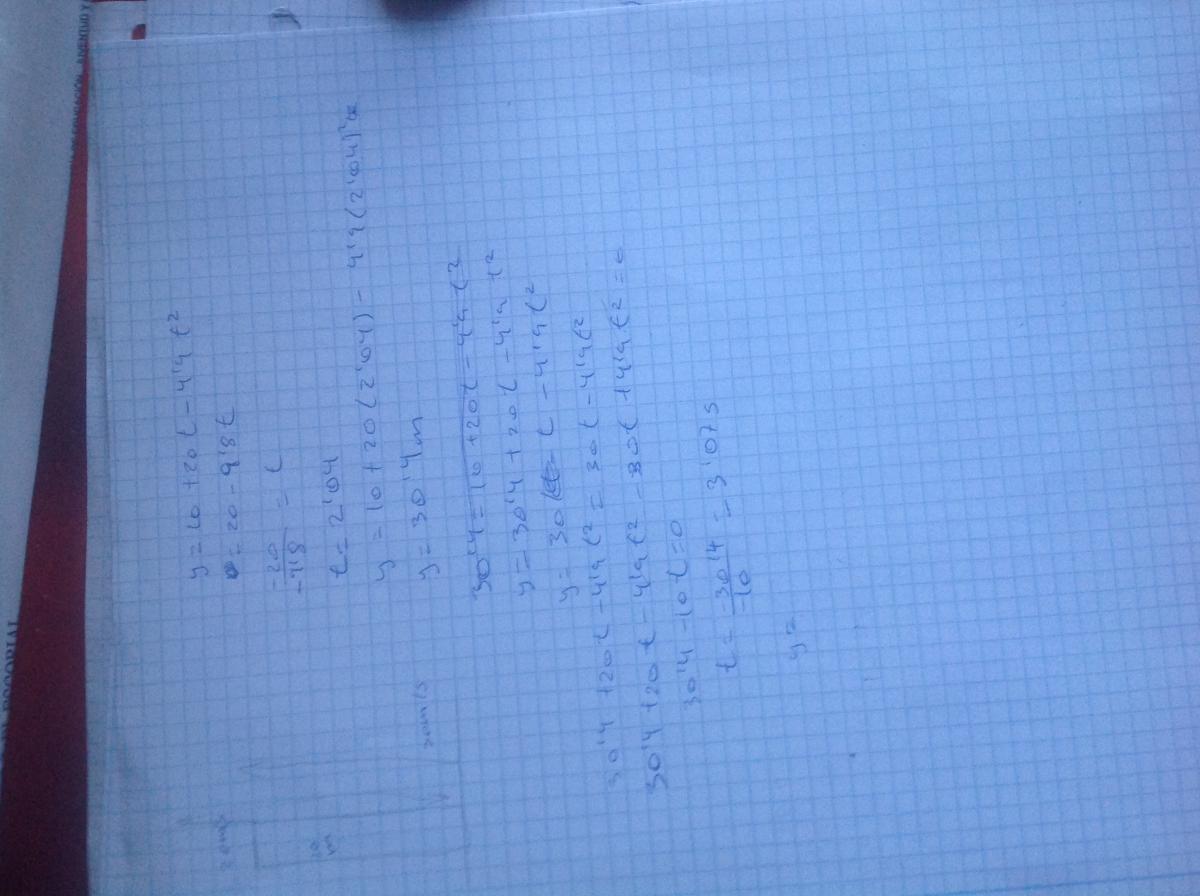 y = 10 + 20t - 4'9t²
= 20 - 9'8t
-20 / -9'8 = t
t = 2'04
y = 10 + 20(2'04) - 4'9(2'04)²
y = 30'4m
30'4 = 10 + 20t - 4'9t²
y = 30'4 + 20t - 4'9t²
y = 30 t - 4'9t²
30'4 + 20t - 4'9t² = 30t - 4'9t²
30'4 + 20t - 4'9t² - 30t + 4'9t² = 0
30'4 - 10t = 0
t = -30'4 / -10 = 3'07s
y =
10 m